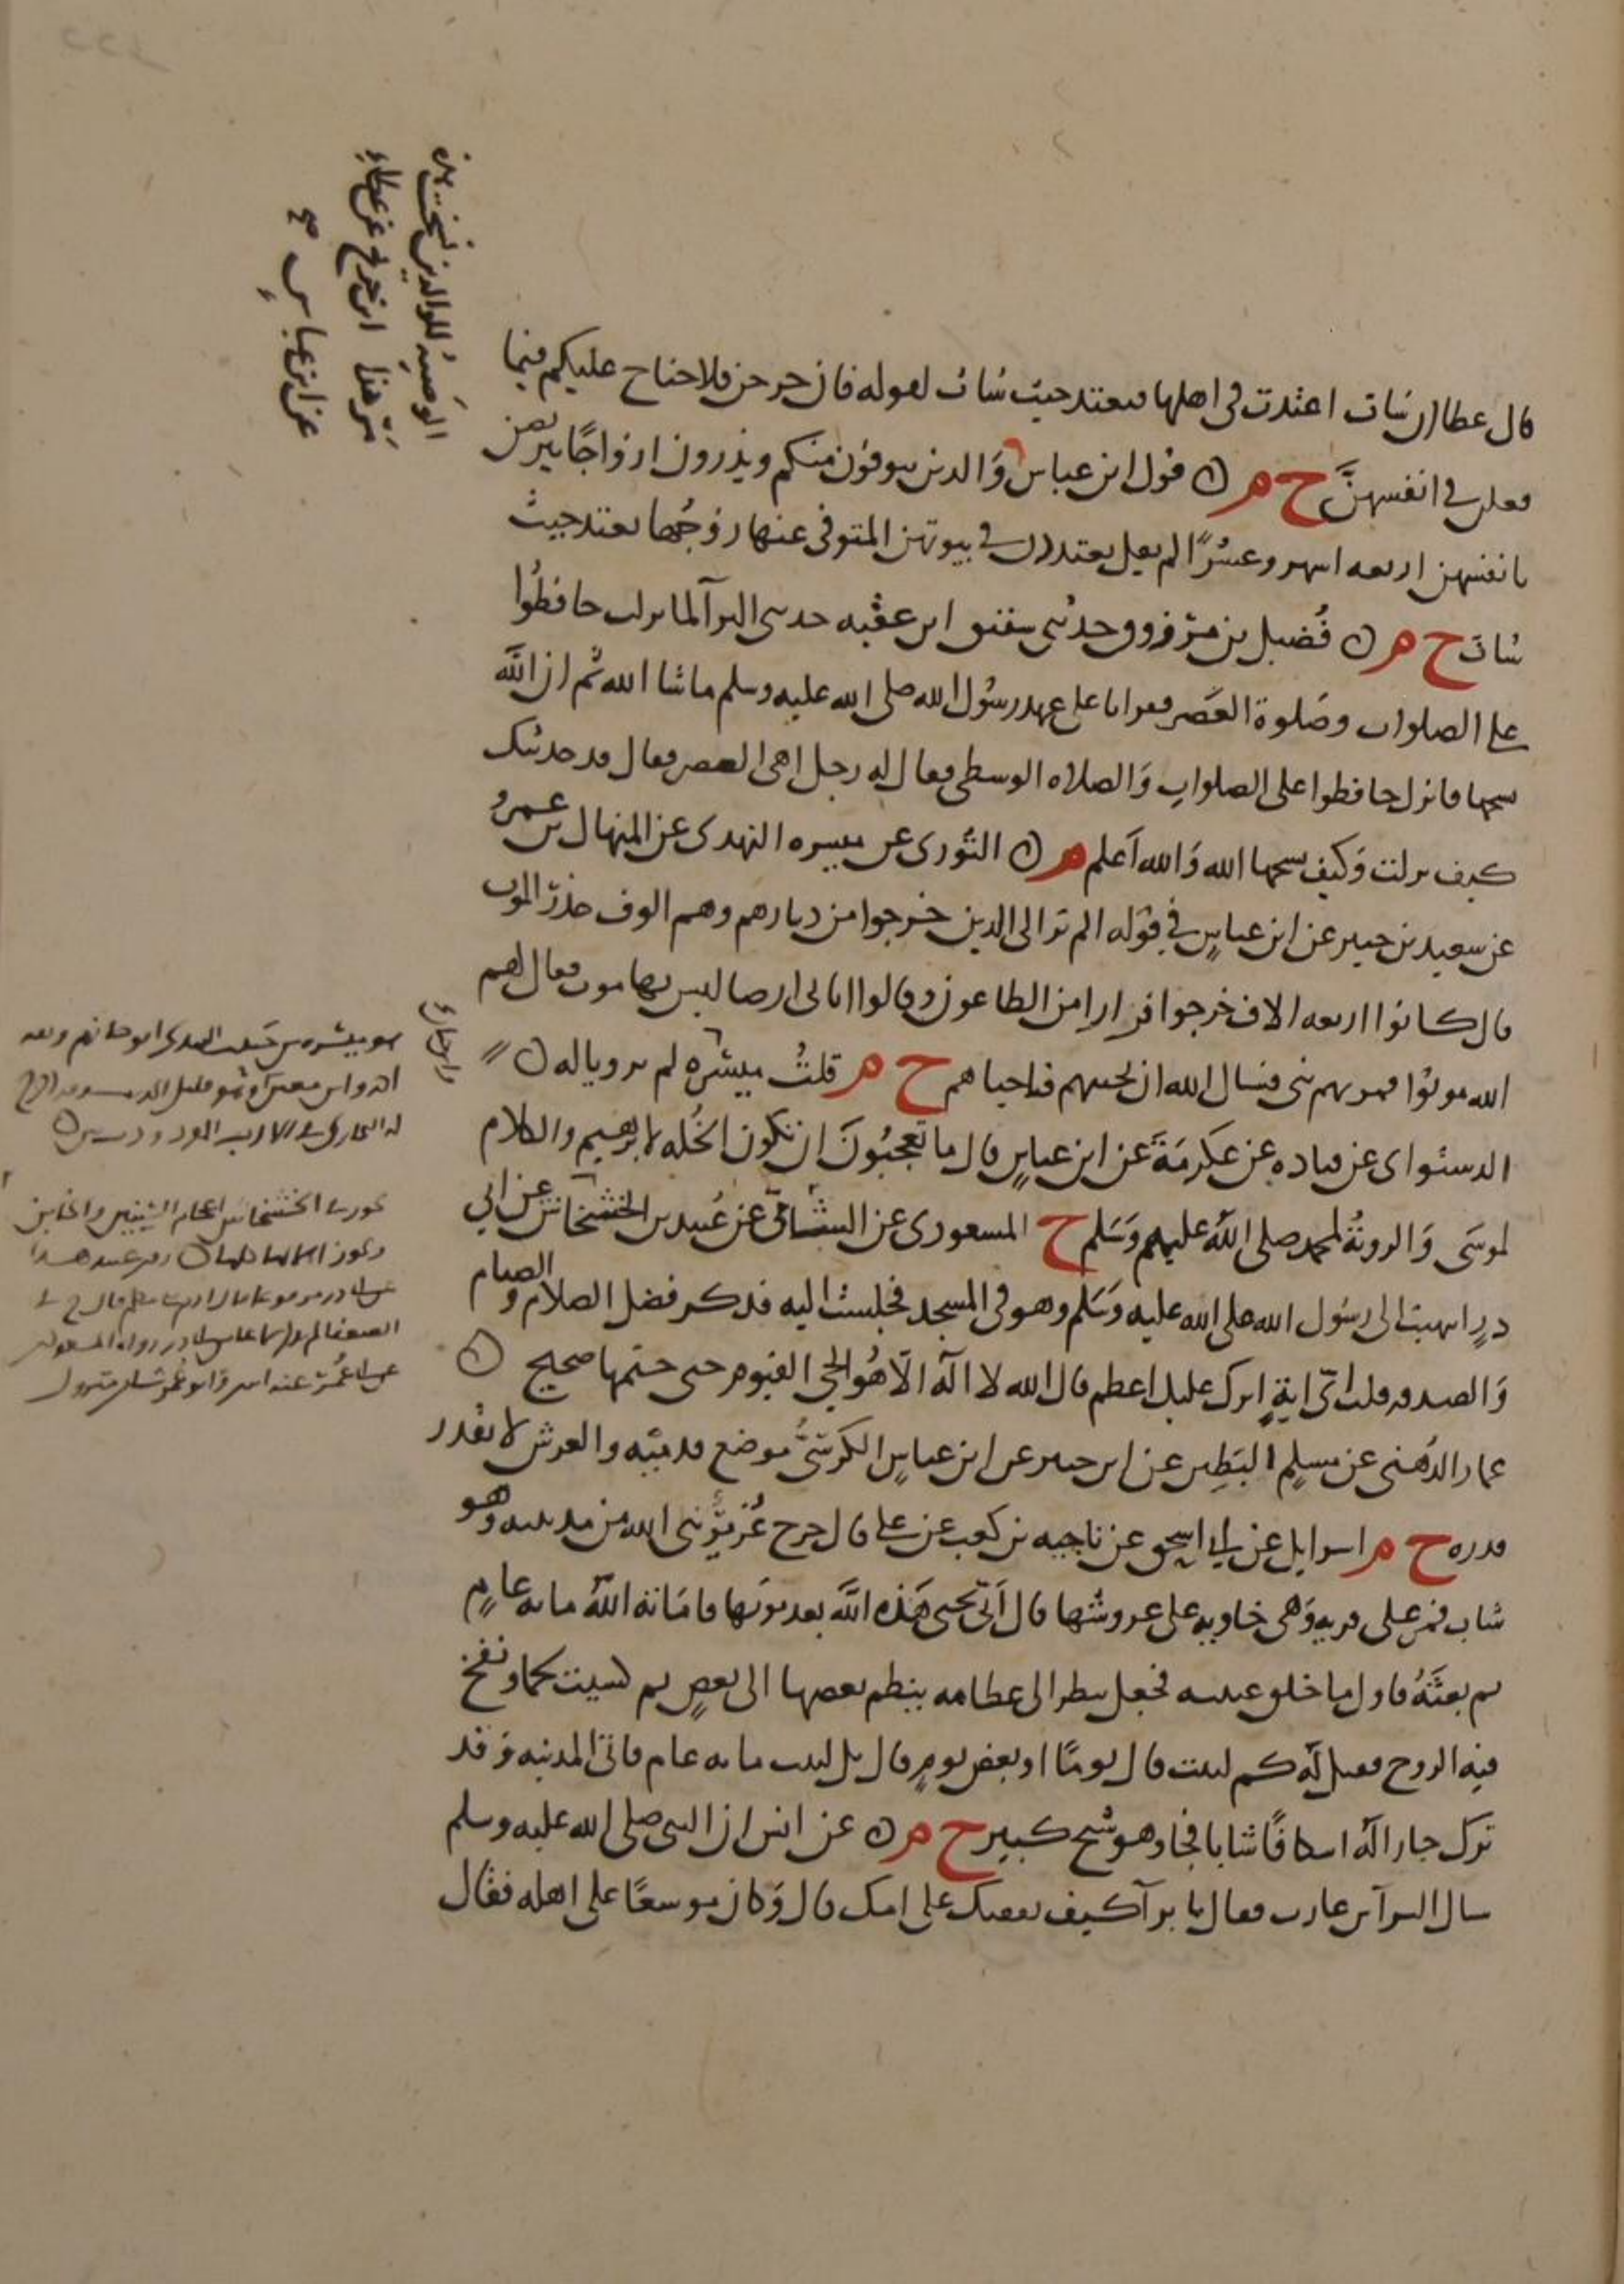 قال عطا ان شات اعتدت في اهلها فتعتد حيث شات لقوله فان خرجن فلا جناح عليكم فيما
فعلن في انفسهنَّ خ م ن قول ابن عباس وَالذين يتوفون منكم ويذرون ازواجًا يتربصن
بانفسهن اربعه اشهر وعشرًا لم يقل يعتددن في بيوتهن المتوفى عنها زوجُها تعتد حيث
شات خ م ن فُضيل بن مرزوق وحدثني شقيق ابن عقبه حدثني البرآ لما نزلت حافظُوا
على الصلوات وصَلوة العَصر فقراناها على عهد رسُول الله صلى الله عليه وسلم ماشا الله ثم ان الله
نسخها فانزل حافظوا على الصلواتِ وَالصلاه الوسطى فقال له رجل اهي العصر فقال قد حدثتك
كيف نزلت وَكيف نسخها الله وَالله اَعلم م ن الثوري عن ميسره النهدي عن المنهال بن عمرو
عن سعيد بن جبير عن ابن عباسٍ في قوله الم تر الى الذين خرجوا من ديارهم وهم الوف حذر الموت
قال كانوا اربعه الاف خرجوا فرارا من الطاعون وقالوا ناتي ارضا ليس بها موت فقال لهم
الله موتوا فمر بهم نبي فسال الله ان يحييهم فاحياهم خ م قلتُ ميسَره لم يرويا له ن
الدستواى عن قتاده عن عكرمَة عن ابن عباسٍ قال ما تعجبُونَ ان تكون الخُله لابرهيم والكلام
لموسَى وَالرويةُ لمحمد صلى الله عليهم وَسَلم خ المسعودي عن الشامي عن عُبيد بن الخشخاش عن ابي
درٍ انتهيت الى رسُول الله صلى الله عليه وَسَلم وهو في المسجد فجلست اليه فذكر فضل الصلاه و الصيام
وَالصدقه قلت اَيّ ايةٍ انزلت عليك اعظم قال الله لا اله الّا هُو الحي القيوم حتى ختمها صحيح ن
عمار الدُهني عن مسلمٍ البَطِين عن ابن جبير عن ابن عباسٍ الكرسيُّ موضع قدميه والعرش لا يقدر
قدره خ م اسرايل عن ابي اسحق عن ناجيه بن كعب عن علي قال خرج عُزيرٌ نبي الله من مدينته وهو
شاب فمر على قريةٍ وَهي خاويه على عروشها قال اَنّى يحيي هَذه اللَّه بعد موتها فامَاته اللهُ مايه عامٍ
ثم بعثَهُ فاول ما خلق عينيه فجعل ينظر الى عظامه ينظم بعضها الى بعضٍ ثم كسيت لحما ونفخ
فيه الروح فقيل له كم لبثت قال يومًا او بعض يومٍ قال بل لبثت مايه عام فاتى المدينه وَقد
ترك جارا له اسكافًا شابا فجا وهو شيخ كبير خ م ن عن انس ان النبي صلى الله عليه وسلم
سال البرآ بن عازب فقال يا برآ كيف نفقتك على امك قال وَكان موسعًا على اهله فقال
الوَصيةُ للوالدين نسخت بهذه
مَرّ هذا ابن جريج عن عطاءٍ
عن ابن عباسٍ صح